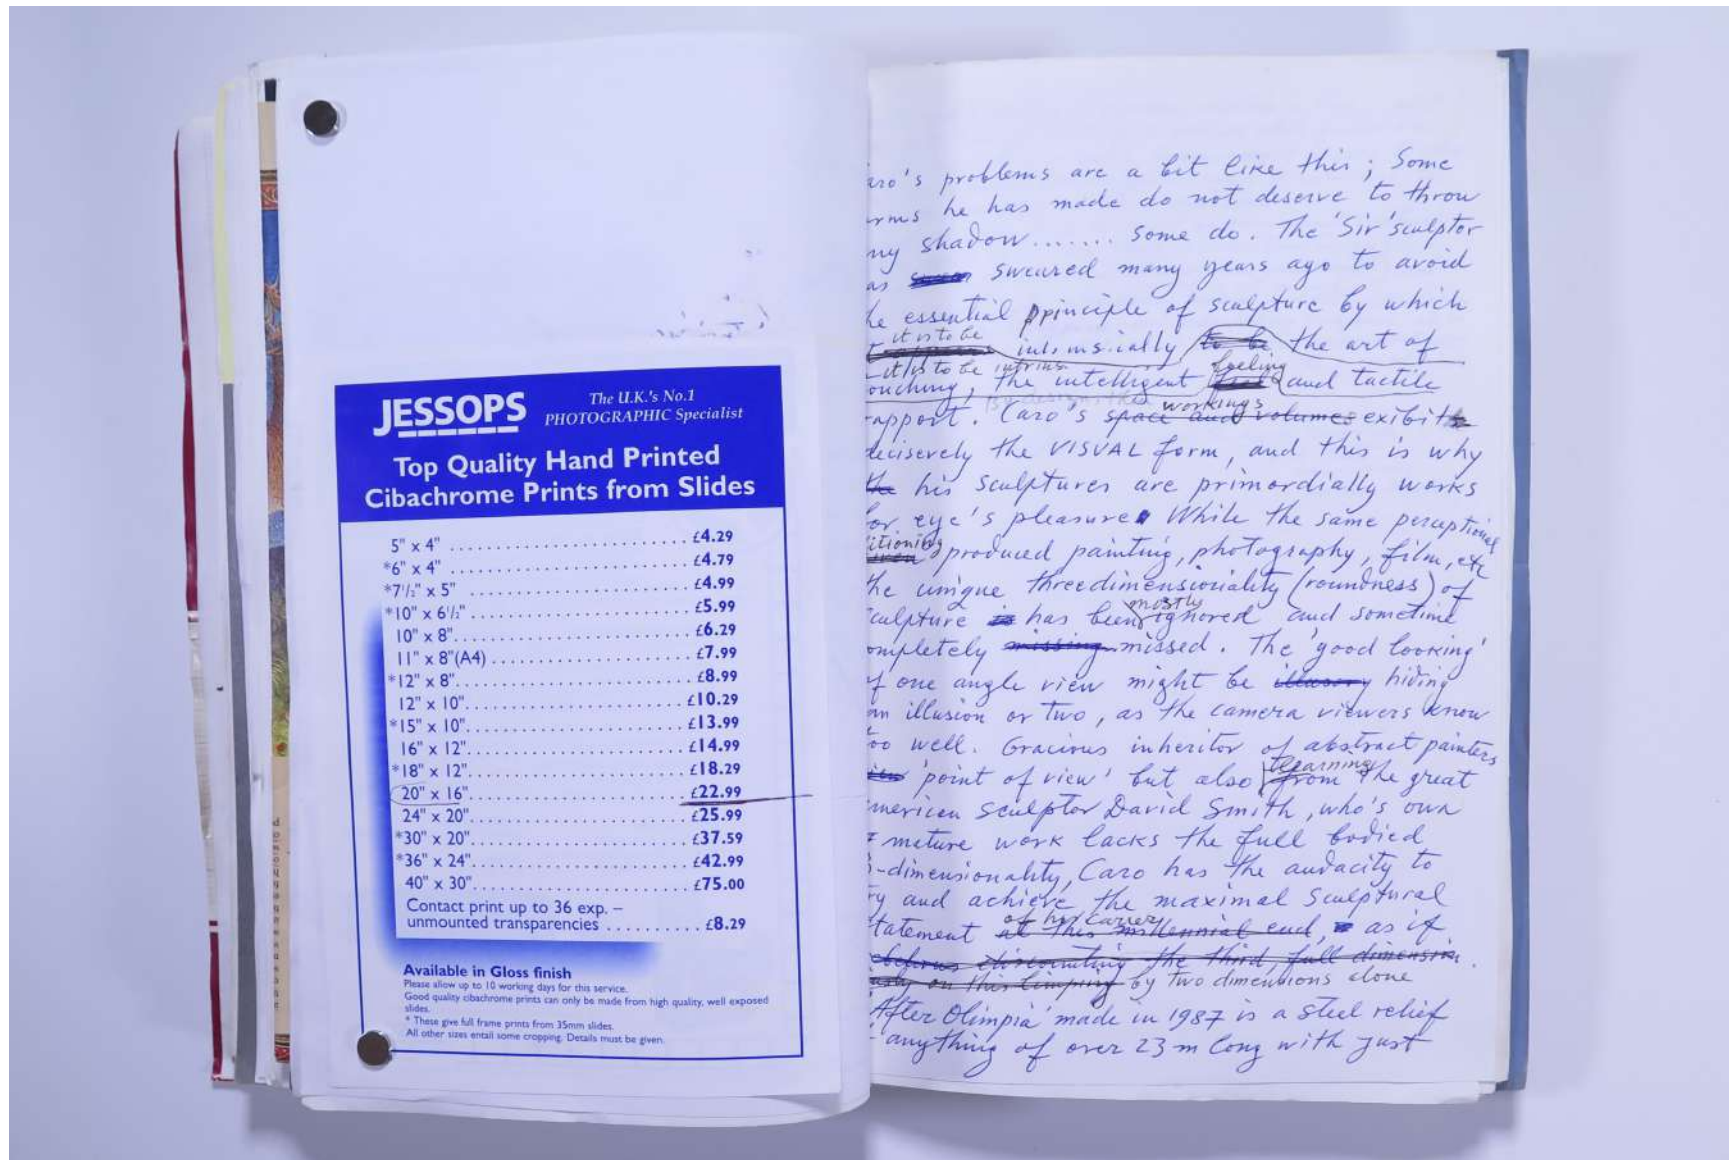 JESSOPS
The U.K.'s No.1
PHOTOGRAPHIC Specialist
Top Quality Hand Printed
Cibachrome Prints from Slides
5" x 4" ........ £4.29
*6" x 4" ........ £4.79
*7 1/2" x 5" ........ £4.99
*10" x 6 1/2" ........ £5.99
10" x 8" ........ £6.29
11" x 8"(A4) ........ £7.99
*12" x 8" ........ £8.99
12" x 10" ........ £10.29
*15" x 10" ........ £13.99
16" x 12" ........ £14.99
*18" x 12" ........ £18.29
20" x 16" ........ £22.99
24" x 20" ........ £25.99
*30" x 20" ........ £37.59
*36" x 24" ........ £42.99
40" x 30" ........ £75.00
Contact print up to 36 exp. –
unmounted transparencies ........ £8.29
Available in Gloss finish
Please allow up to 10 working days for this service.
Good quality cibachrome prints can only be made from high quality, well exposed
slides.
* These give full frame prints from 35mm slides.
All other sizes entail some cropping. Details must be given.
aro's problems are a bit like this; Some
rms he has made do not deserve to throw
ny shadow....... some do. The 'Sir' sculptor
as sweared many years ago to avoid
he essential principle of sculpture by which
it is to be
intrinsically to be the art of
it is to be intrins feeling
ouching, the intelligent and tactile
workings
rapport. Caro's space and volumes exibit
decisevely the VISUAL form, and this is why
the his sculptures are primordially works
for eye's pleasure. While the same perceptional
itioning produced painting, photography, film, etc
he unique threedimensionality (roundness) of
mostly
culpture is has been ignored and sometime
ompletely missing missed. The 'good looking'
of one angle view might be illusory hiding
an illusion or two, as the camera viewers know
too well. Gracious inheritor of abstract painters
learning
view 'point of view' but also from the great
merican sculptor David Smith, who's own
mature work lacks the full bodied
3-dimensionality, Caro has the audacity to
ry and achieve the maximal sculptural
of his carrier
tatement at this millennial end, as if
discounting the third, full dimension.
on this limping by two dimensions alone
'After Olimpia' made in 1987 is a steel relief
anything of over 23 m long with just